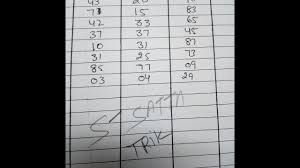 71 15 83
42 33 65
37 37 45
10 31 87
31 25 73
85 77 09
03 04 29
S SATTA
TRIK